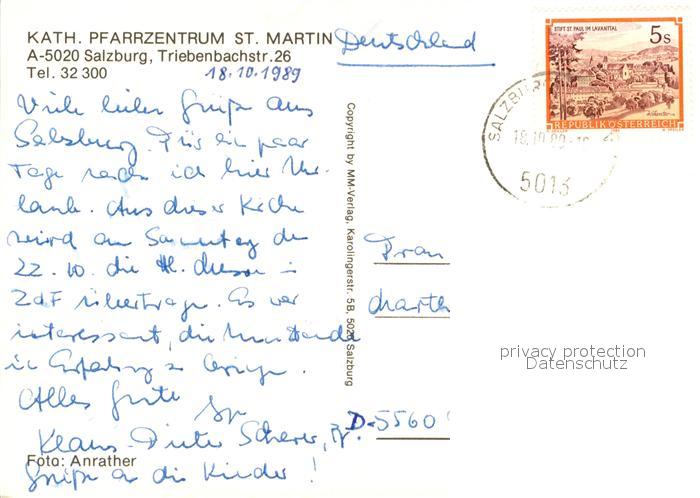 KATH. PFARRZENTRUM ST. MARTIN
A-5020 Salzburg, Triebenbachstr.26
Tel. 32 300
18.10.1989
Viele liebe Grüße aus
Salzburg. Für ein paar
Tage mache ich hier Ur-
laub. Aus dieser Kirche
wird am Sonntag den
22.10. die hl. Messe im
ZDF übertragen. Es war
interessant, die
in Erfahrung zu bringen.
Alles Gute
Ihr
Klaus-Dieter Scherer, Pf.
Grüße an die Kinder!
Foto: Anrather
Copyright by MM-Verlag, Karolingerstr. 5B, 5020 Salzburg
Deutschland
STIFT ST. PAUL IM LAVANTTAL
5 S
REPUBLIK ÖSTERREICH
SALZBURG
18.10.89
5013
Frau
Marth
D-5560
privacy protection
Datenschutz